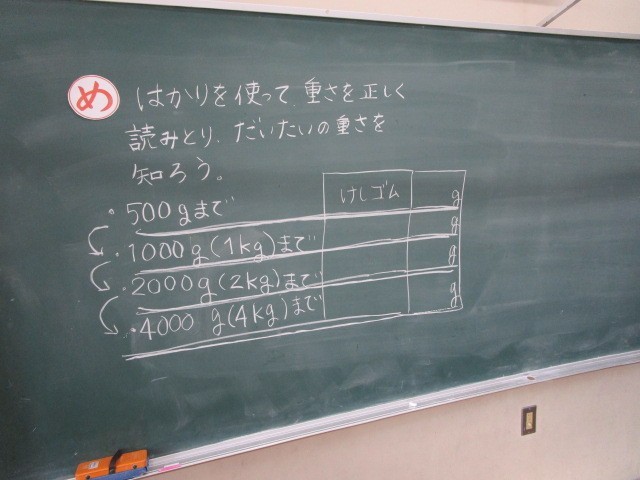 め はかりを使って、重さを正しく
読みとり、だいたいの重さを
知ろう。
・500gまで けしゴム g
・1000g(1kg)まで g
・2000g(2kg)まで g
・4000 g(4kg)まで g